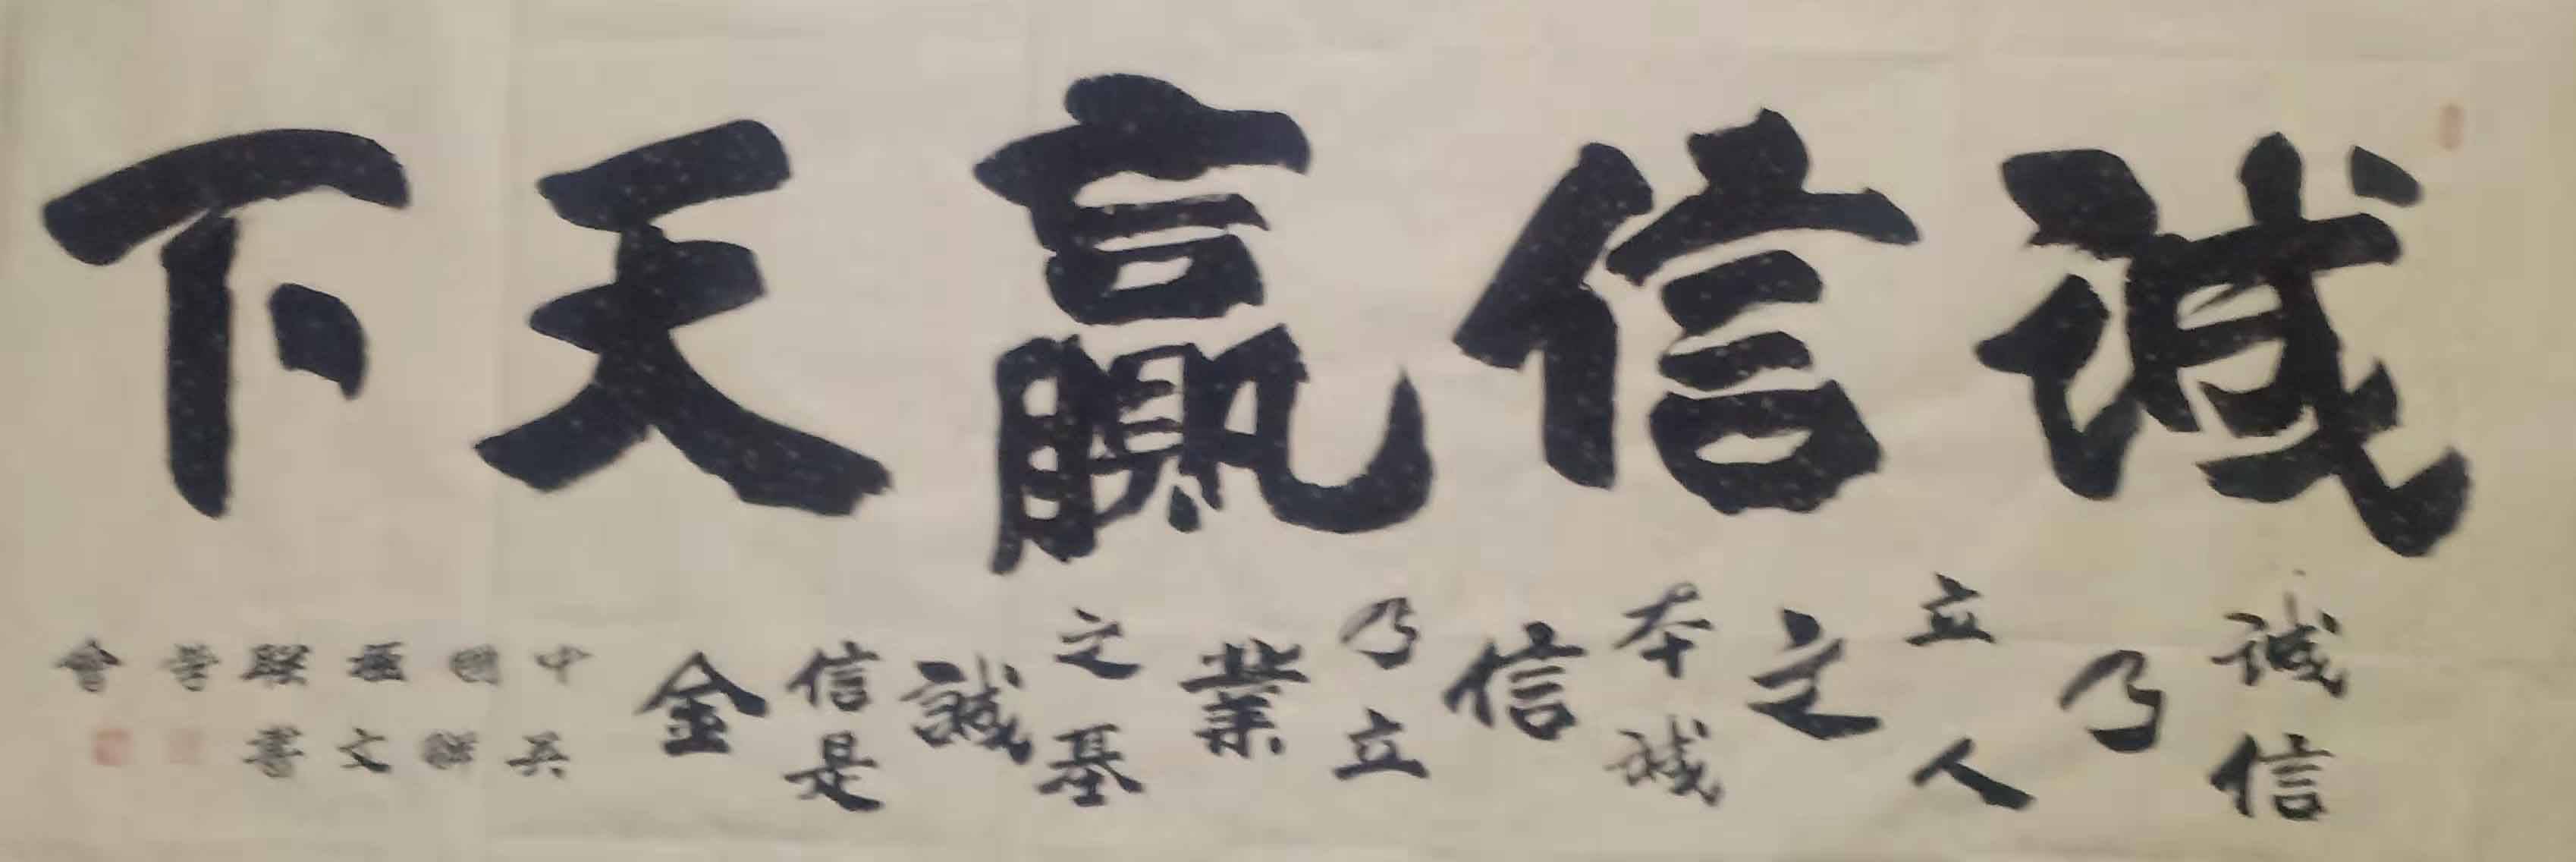 誠信贏天下
誠信乃立人之本誠信乃立業之基誠信是金
中國楹联学會
吳文書